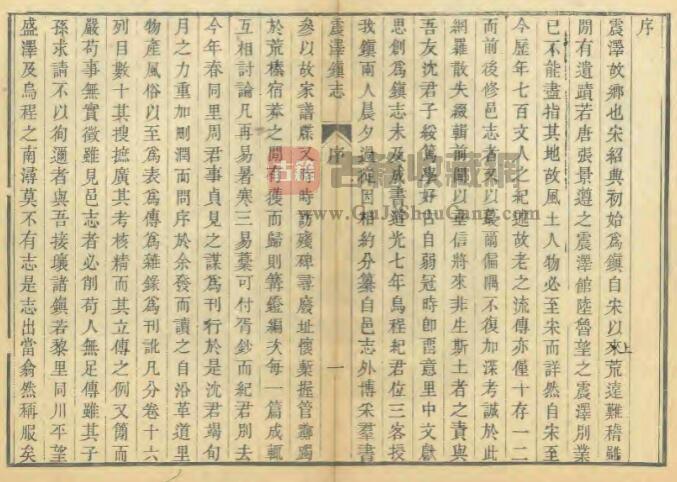 序
震澤故鄉也宋紹興初始爲鎮自宋以來荒遠難稽雖
上
間有遺蹟若唐張景遵之震澤館陸魯望之震澤別業
已不能盡指其地故風土人物必至宋而詳然自宋至
今歷年七百文人之紀述故老之流傳亦僅十存一二
而前後修邑志者又以蕞爾偏隅不復加深考誠於此
網羅散失綴輯前聞以垂信將來非生斯土者之責與
吾友沈君子綏篤學好古自弱冠時卽畱意里中文獻
思創爲鎮志未及成書道光七年烏程紀君位三客授
我鎮兩人晨夕過從因相約分纂自邑志外博采羣書
震澤鎮志
序
一
參以故家譜牒又時時訪殘碑尋廢址懷槧握管躑躅
於荒榛宿莽之間有獲而歸則篝鐙編次每一篇成輒
互相討論凡再易暑寒三易藁可付胥鈔而紀君別去
今年春同里周君事貞見之謀爲刊行於是沈君竭旬
月之力重加刪潤而問序於余發而讀之自沿革道里
物產風俗以至爲表爲傳爲雜錄爲刊訛凡分卷十六
列目數十其搜摭廣其考核精而其立傳之例又簡而
嚴苟事無實徵雖見邑志者必削苟人無足傳雖其子
孫求請不以徇邇者與吾接壤諸鎮若黎里同川平望
盛澤及烏程之南潯莫不有志是志出當翕然稱服矣
古籍
古籍收藏網
www.GuJiShouCang.com